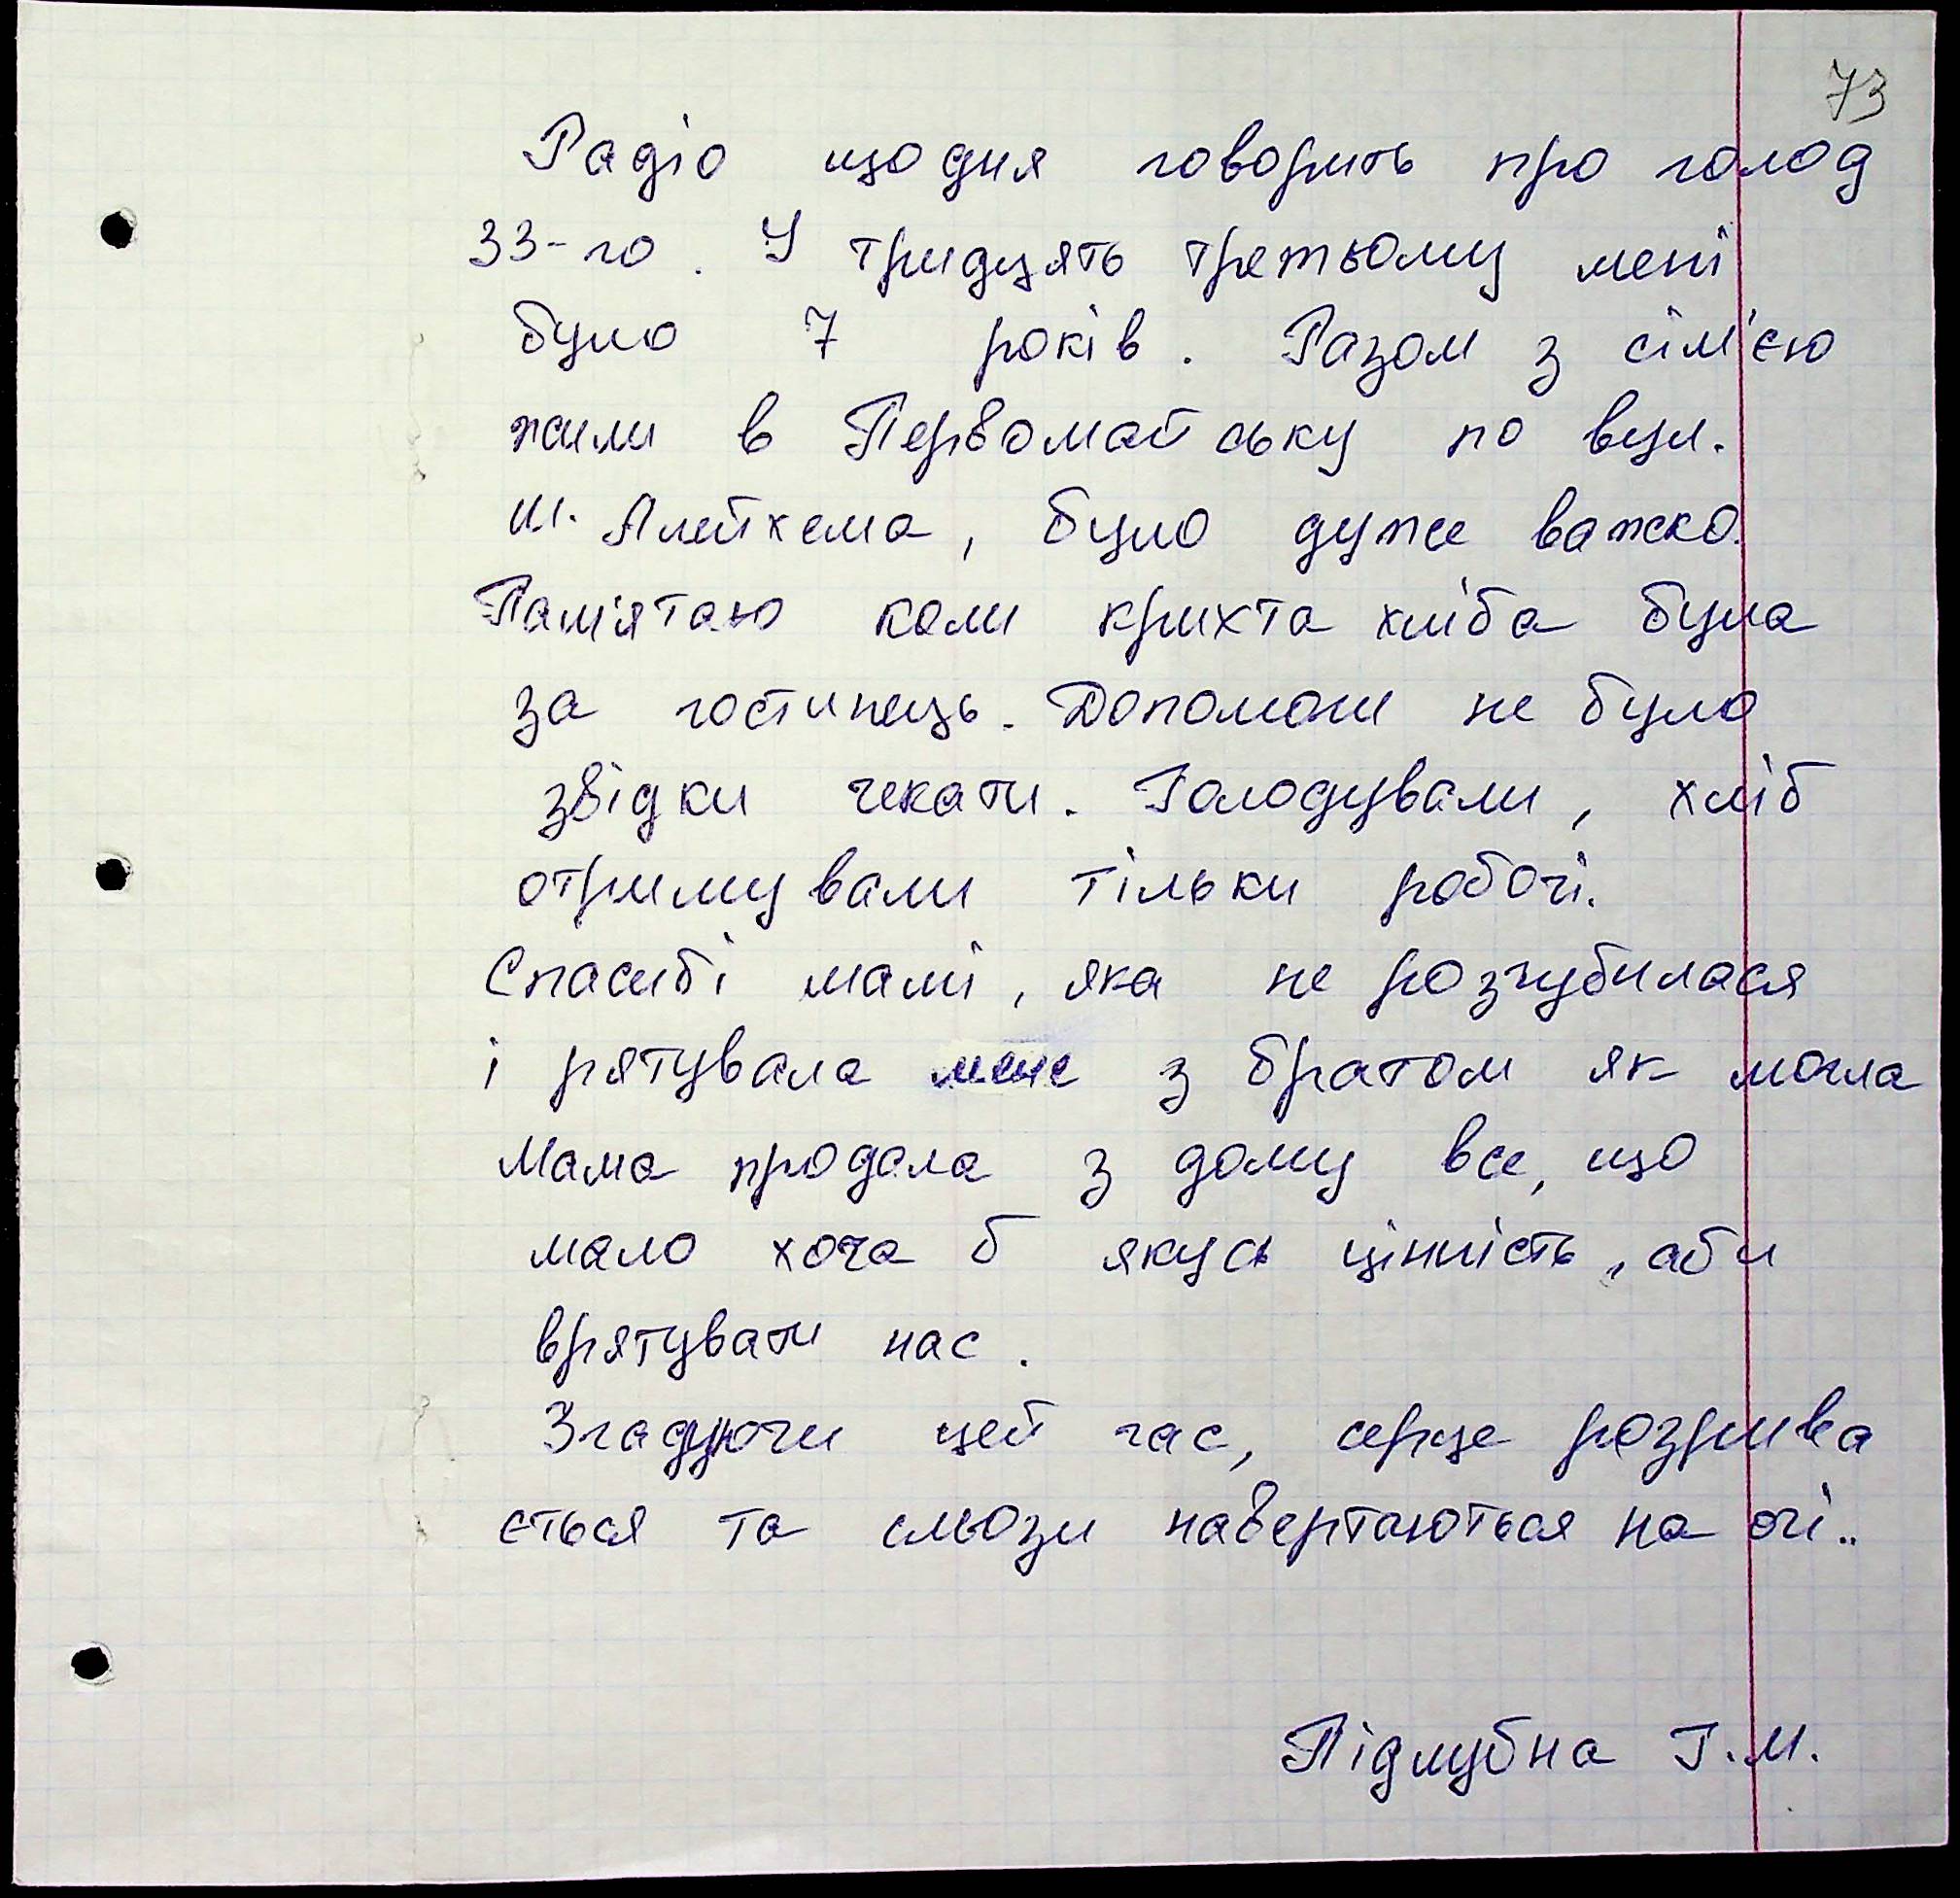 73
Радіо щодня говорить про голод
33-го. У тридцять третьому мені
було 7 років. Разом з сім'єю
жили в Первомайську по вул.
Ш. Алейхема, було дуже важко.
Пам'ятаю коли крихта хліба була
за гостинець. Допомоги не було
звідки чекати. Голодували, хліб
отримували тільки робочі.
Спасибі мамі, яка не розгубилася
і рятувала мене з братом як могла
Мама продала з дому все, що
мало хоча б якусь цінність, аби
врятувати нас.
Згадуючи цей час, серце розрива
ється та сльози навертаються на очі..
Підлубна Г.М.